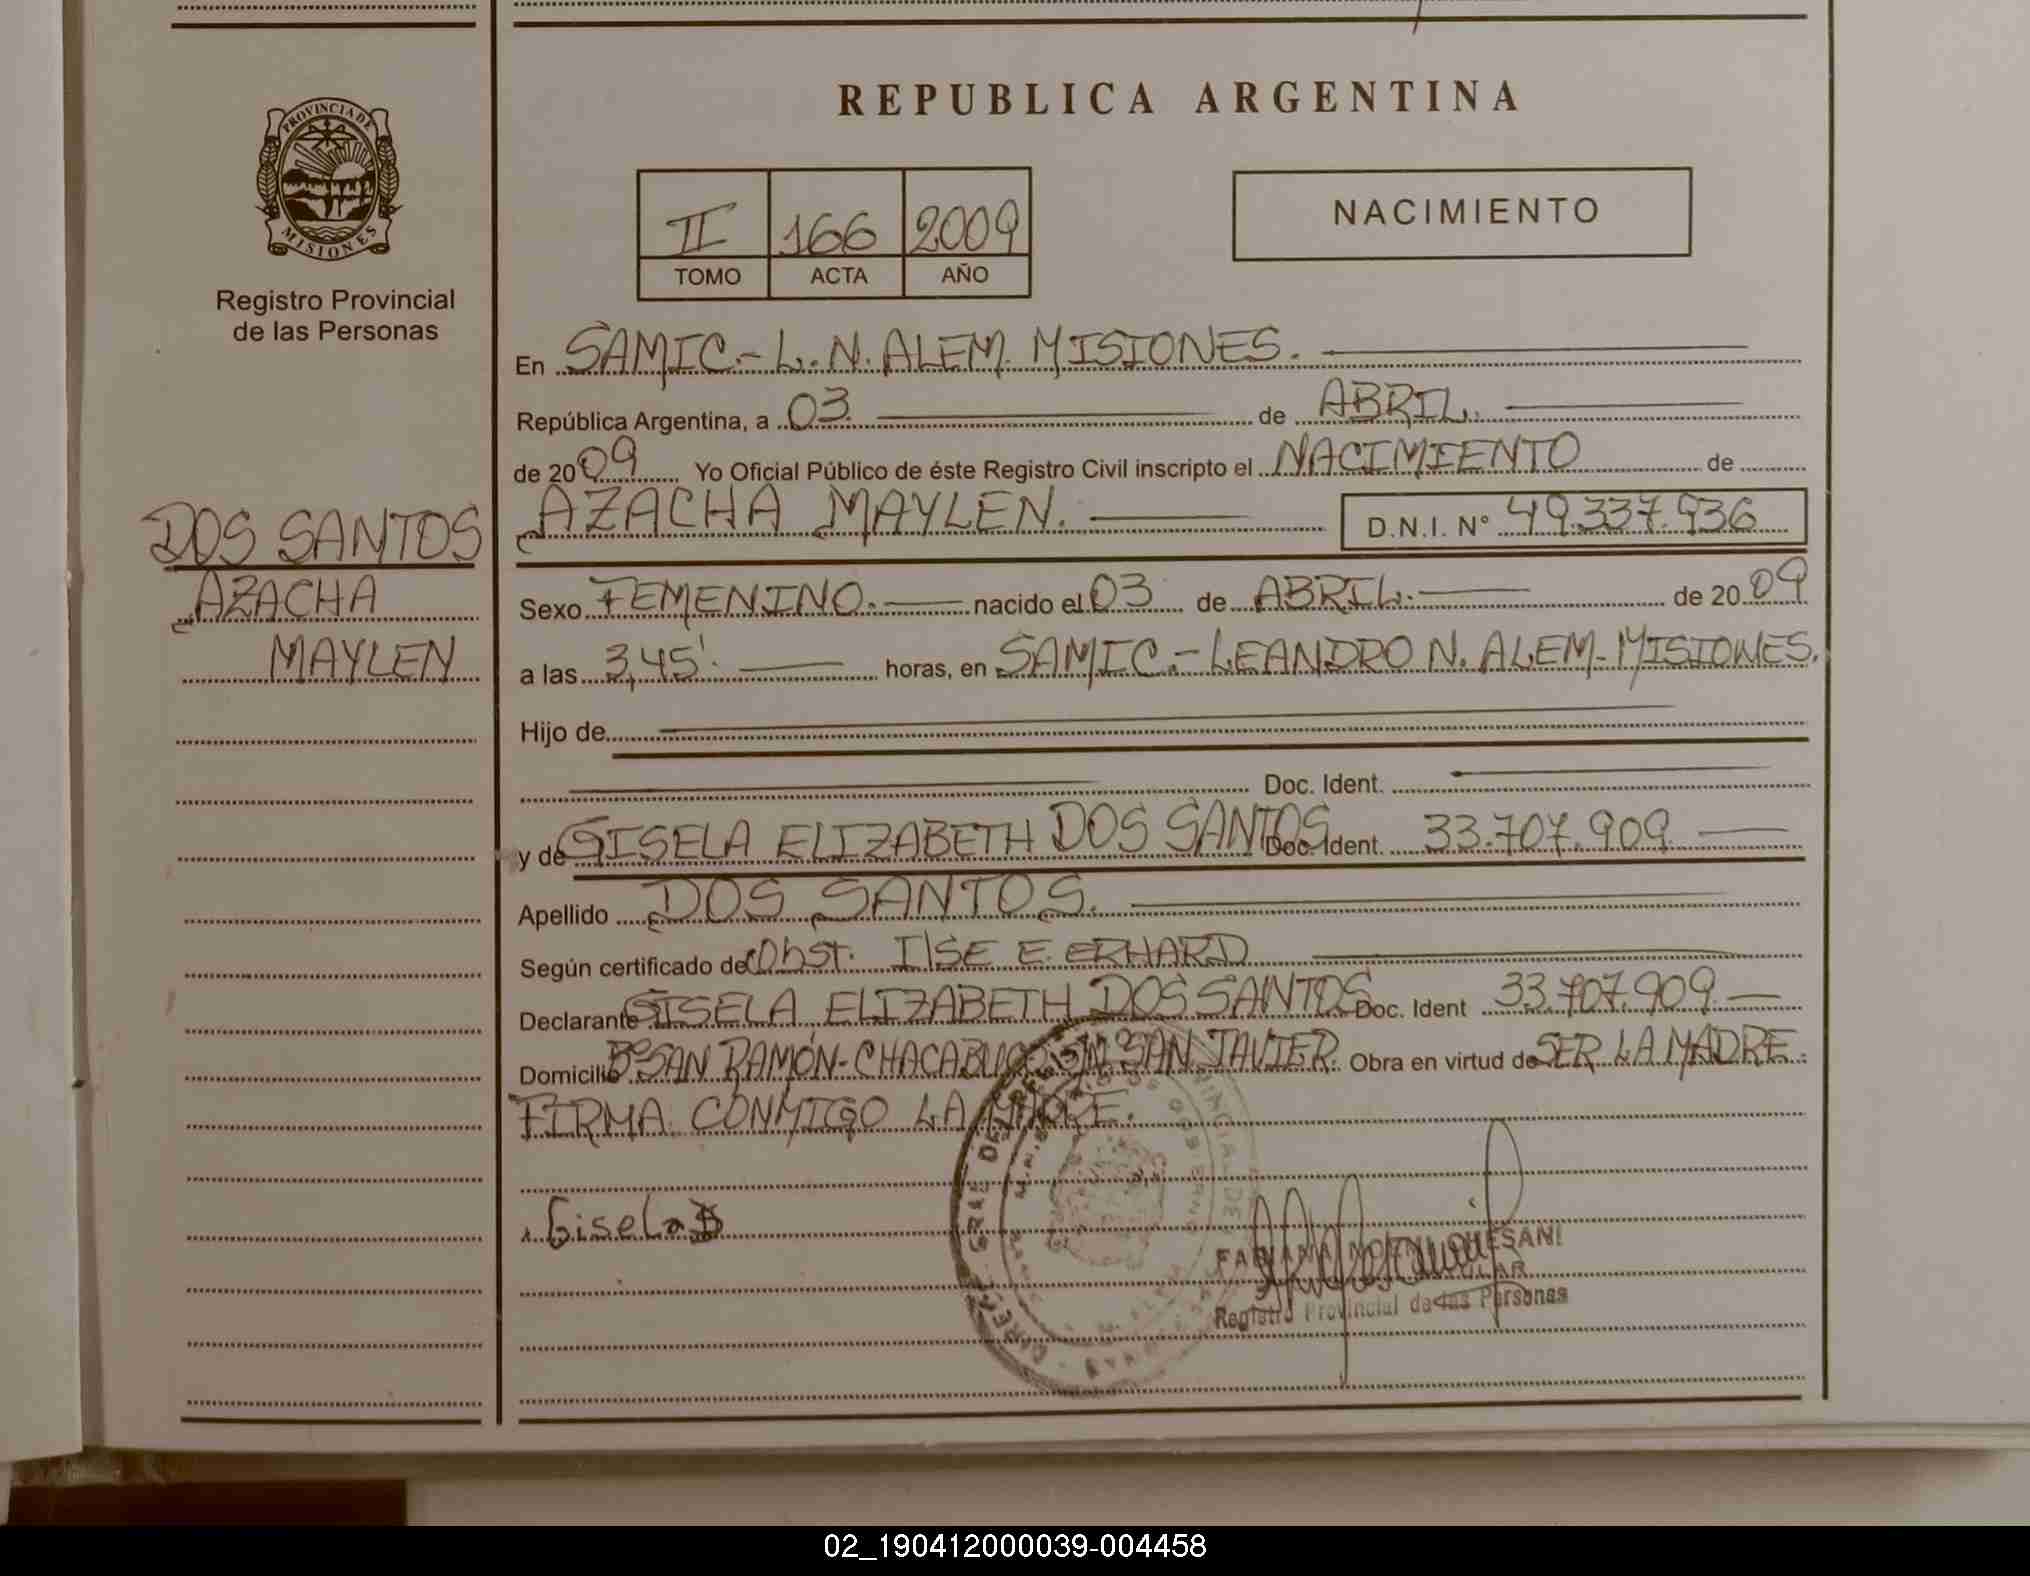 REPUBLICA ARGENTINA
PROVINCIA DE
MISIONES
Registro Provincial
de las Personas
II 166 2009
TOMO ACTA AÑO
NACIMIENTO
DOS SANTOS
AZACHA
MAYLEN
En SAMIC.- L. N. ALEM. MISIONES.
República Argentina, a 03 de ABRIL.
de 2009 Yo Oficial Público de éste Registro Civil inscripto el NACIMIENTO de
AZACHA MAYLEN. D.N.I. N° 49.337.936
Sexo FEMENINO. nacido el 03 de ABRIL. de 2009
a las 3,45'. horas, en SAMIC.- LEANDRO N. ALEM- MISIONES.
Hijo de
Doc. Ident.
y de GISELA ELIZABETH DOS SANTOS Doc. Ident. 33.707.909.
Apellido DOS SANTOS.
Según certificado de Obst. ILSE E. ERHARD
Declarante GISELA ELIZABETH DOS SANTOS Doc. Ident 33.707.909.
Domicilio B° SAN RAMÓN- CHACABUCO SAN JAVIER. Obra en virtud de SER LA MADRE.
FIRMA CONMIGO LA MADRE.
Gisela D
Registro Provincial de las Personas
02_190412000039-004458